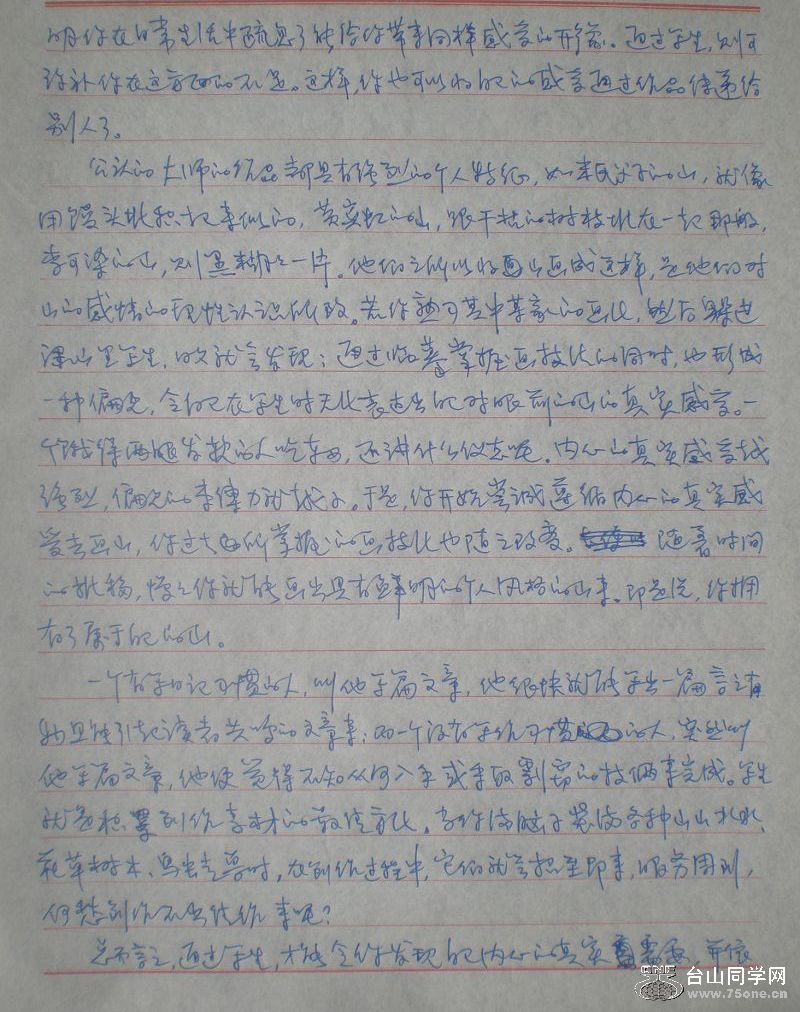 明你在日常生活中疏忽了能给你带来同样感受的形象。通过写生,则可
弥补你在这方面的不足。这样,你也可以将自己的感受通过作品传递给
别人了。
公认的大师的作品都具有强烈的个人特征,如米氏父子的山,就像
用馒头堆积起来似的,黄宾虹的山,跟干枯的树枝堆在一起那般,
李可染的山,则黑糊糊一片。他们之所以将画山画成这样,是他们对
山的感情的理性认识所致。若你熟习其中某家的画法,然后躲进
深山里写生,你就会发现:通过临摹掌握画技法的同时,也形成
一种偏见,令自己在写生时无法表达出自己对眼前的山的真实感受。一
个饿得两腿发软的人吃东西,还讲什么仪态呢。内心的真实感受越
强烈,偏见的牵傳力就越小。于是,你开始尝试遵循内心的真实感
受去画山,你过去所掌握的画技法也随之改变。随着时间
的推移,慢慢你就能画出具有鲜明的个人风格的山来。即是说,你拥
有了属于自己的山。
一个有写日记习惯的人,叫他写篇文章,他很快就能写出一篇言之有
物且能引起读者共鸣的文章来;而一个没有写作习惯的人,突然叫
他写篇文章,他便觉得不知从何入手或采取剽窃的技俩来完成。写生
就是积累创作素材的最佳方法。当你满脑子装满各种山山水水、
花草树木、鸟虫走兽时,在创作过程中,它们就会招至即来,服务周到,
何愁创作不出佳作来呢?
总而言之,通过写生,才能令你发现自己内心的真实需要,并依
台山同学网
www.75one.cn